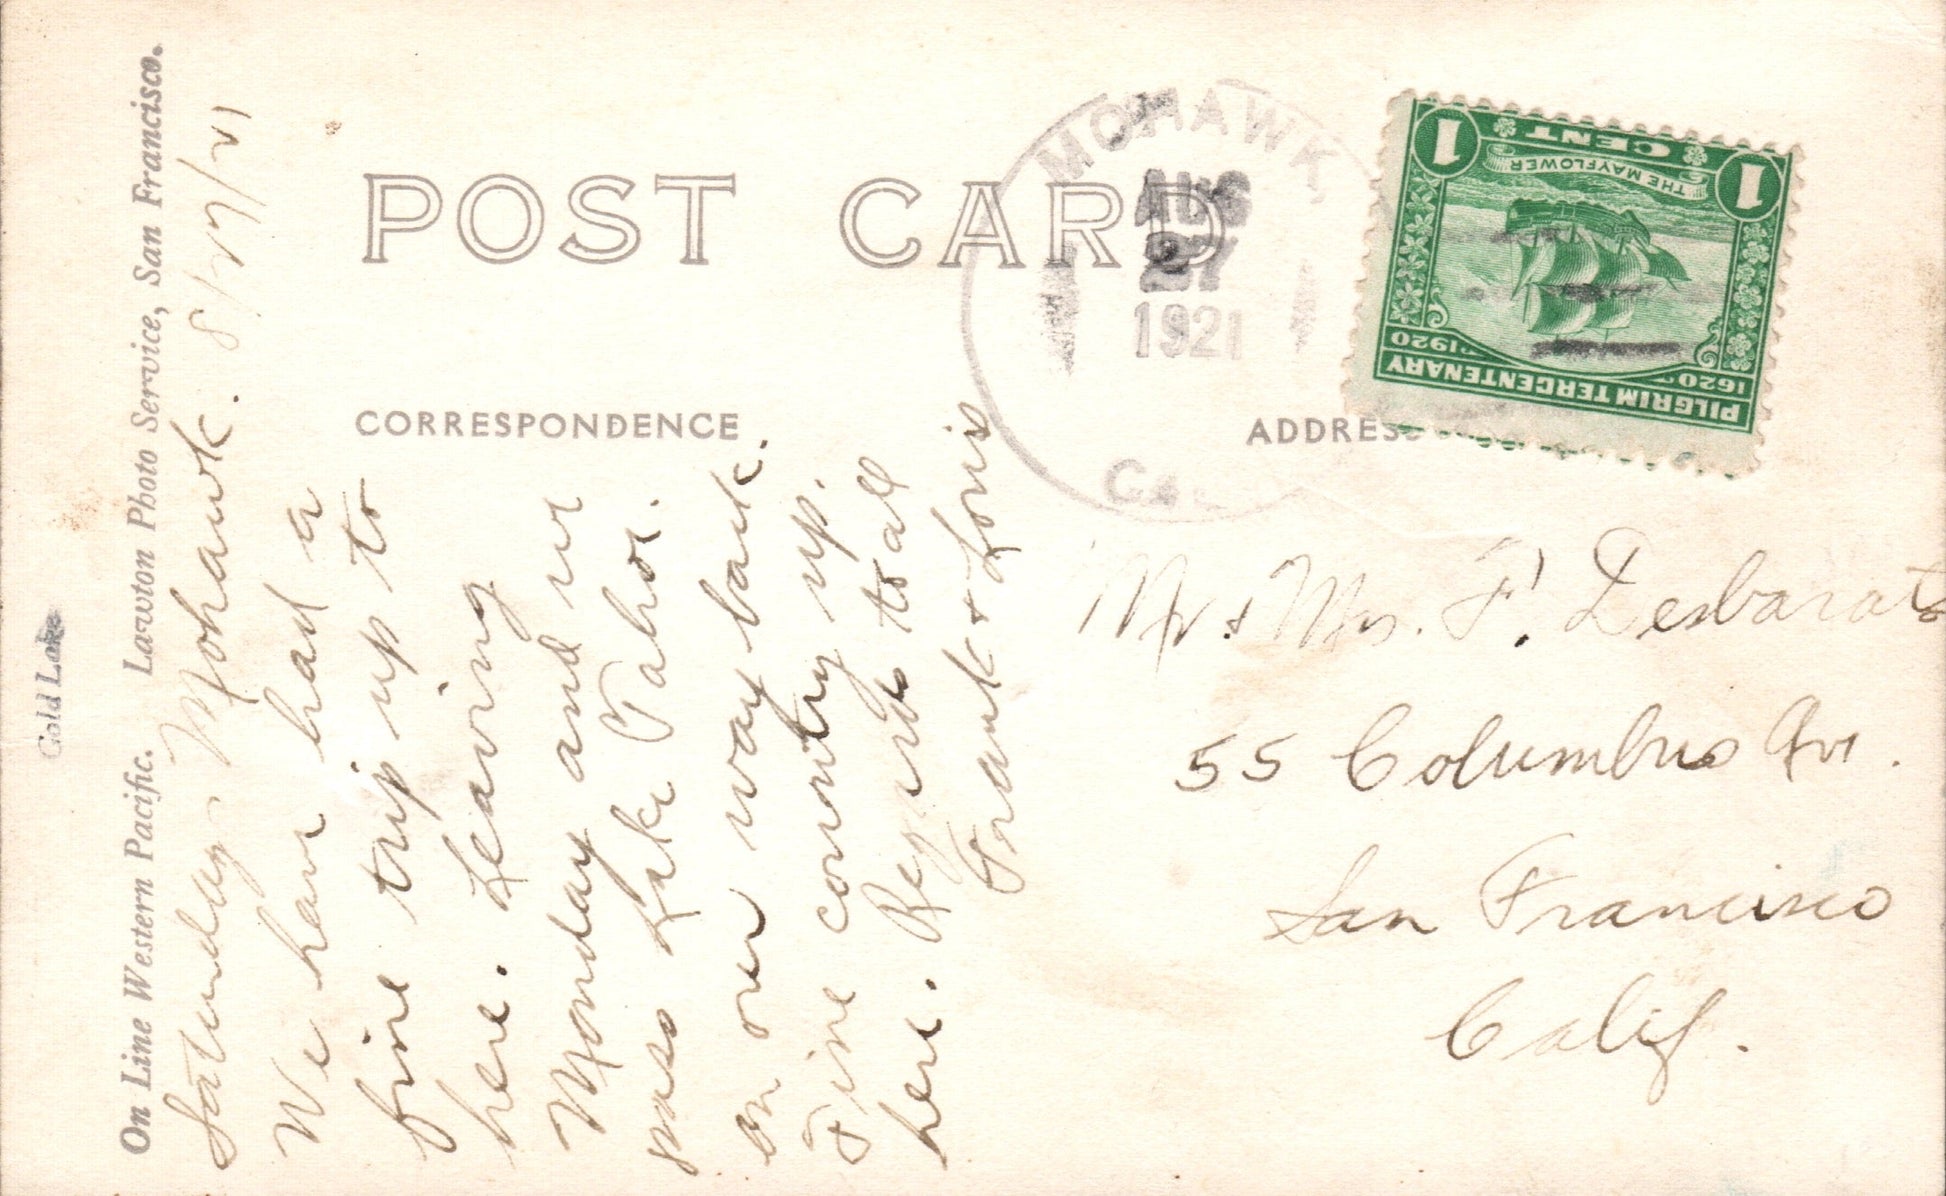 Gold Lake
On Line Western Pacific. Lawton Photo Service, San Francisco.
POST CARD
CORRESPONDENCE
ADDRESS
MOHAWK
AUG
27
1921
CAL
1 CENT 1
THE MAYFLOWER
1620 1920
PILGRIM TERCENTENARY
Saturday Mohawk. 8/27/21
We have had a
fine trip up to
here. Leaving
Monday and we
pass Lake Tahoe.
on our way back.
Fine country up
here. Regards to all
Frank & Loris
Mr. & Mrs. F. Desbarats
55 Columbus Ave.
San Francisco
Calif.